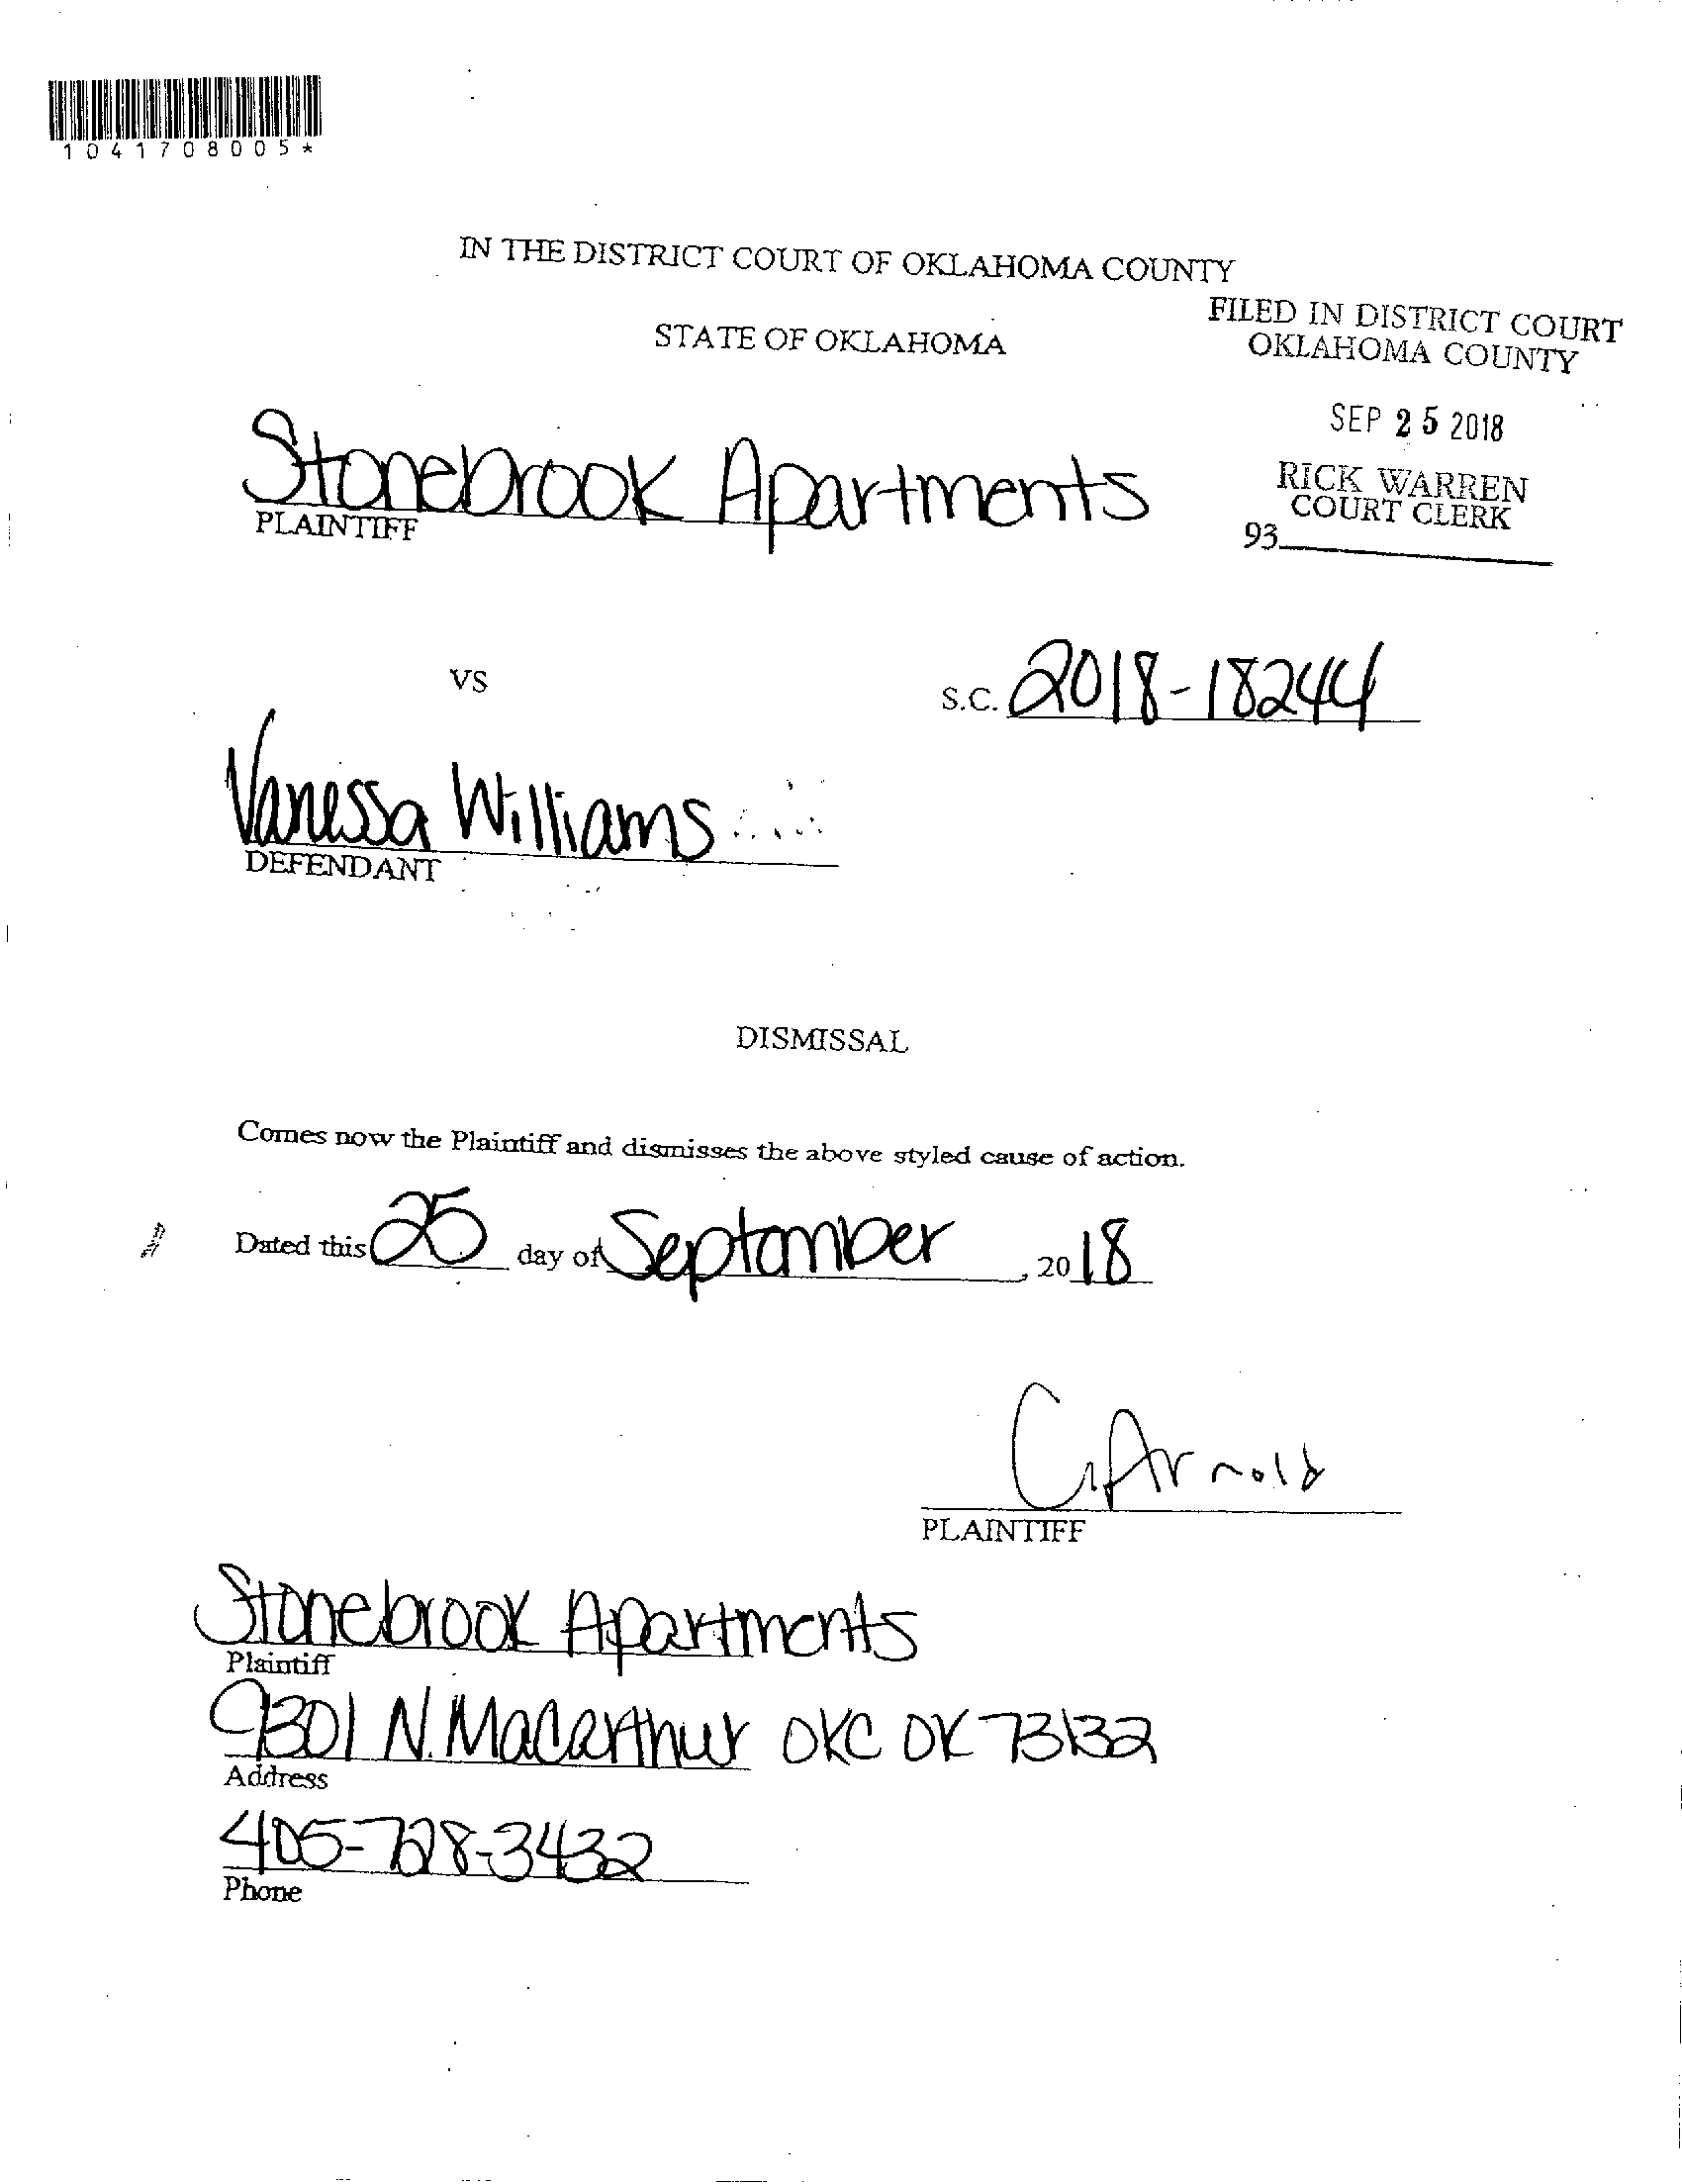 1041708005*
IN THE DISTRICT COURT OF OKLAHOMA COUNTY
STATE OF OKLAHOMA
FILED IN DISTRICT COURT
OKLAHOMA COUNTY
SEP 25 2018
RICK WARREN
COURT CLERK
93
Stonebrook Apartments
PLAINTIFF
VS
S.C. 2018-18244
Vanessa Williams
DEFENDANT
DISMISSAL
Comes now the Plaintiff and dismisses the above styled cause of action.
Dated this 25 day of September, 2018
C. Arnold
PLAINTIFF
Stonebrook Apartments
Plaintiff
9301 N. MacArthur OKC OK 73132
Address
405-728-3432
Phone